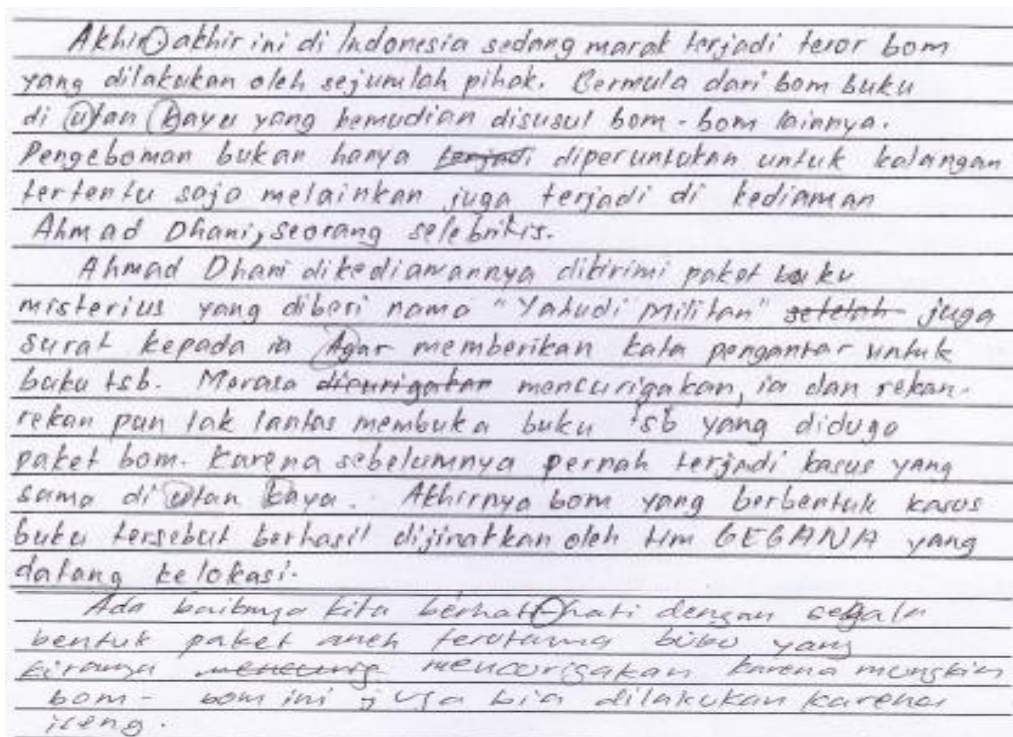 Akhir-akhir ini di Indonesia sedang marak terjadi teror bom
yang dilakukan oleh sejumlah pihak. Bermula dari bom buku
di utan kayu yang kemudian disusul bom-bom lainnya.
Pengeboman bukan hanya terjadi diperuntukan untuk kalangan
tertentu saja melainkan juga terjadi di kediaman
Ahmad Dhani, seorang selebritis.
Ahmad Dhani dikediamannya dikirimi paket buku
misterius yang diberi nama "Yahudi Militan" setelah juga
surat kepada ia Agar memberikan kata pengantar untuk
buku tsb. Merasa dicurigakan mencurigakan, ia dan rekan-
rekan pun tak lantas membuka buku tsb yang diduga
paket bom. Karena sebelumnya pernah terjadi kasus yang
sama di utan kayu. Akhirnya bom yang berbentuk kasus
buku tersebut berhasil dijinakkan oleh tim GEGANA yang
datang kelokasi.
Ada baiknya kita berhati-hati dengan segala
bentuk paket aneh terutama buku yang
kiranya mencurigakan karena mungkin
bom-bom ini juga bia dilakukan karena
iseng.